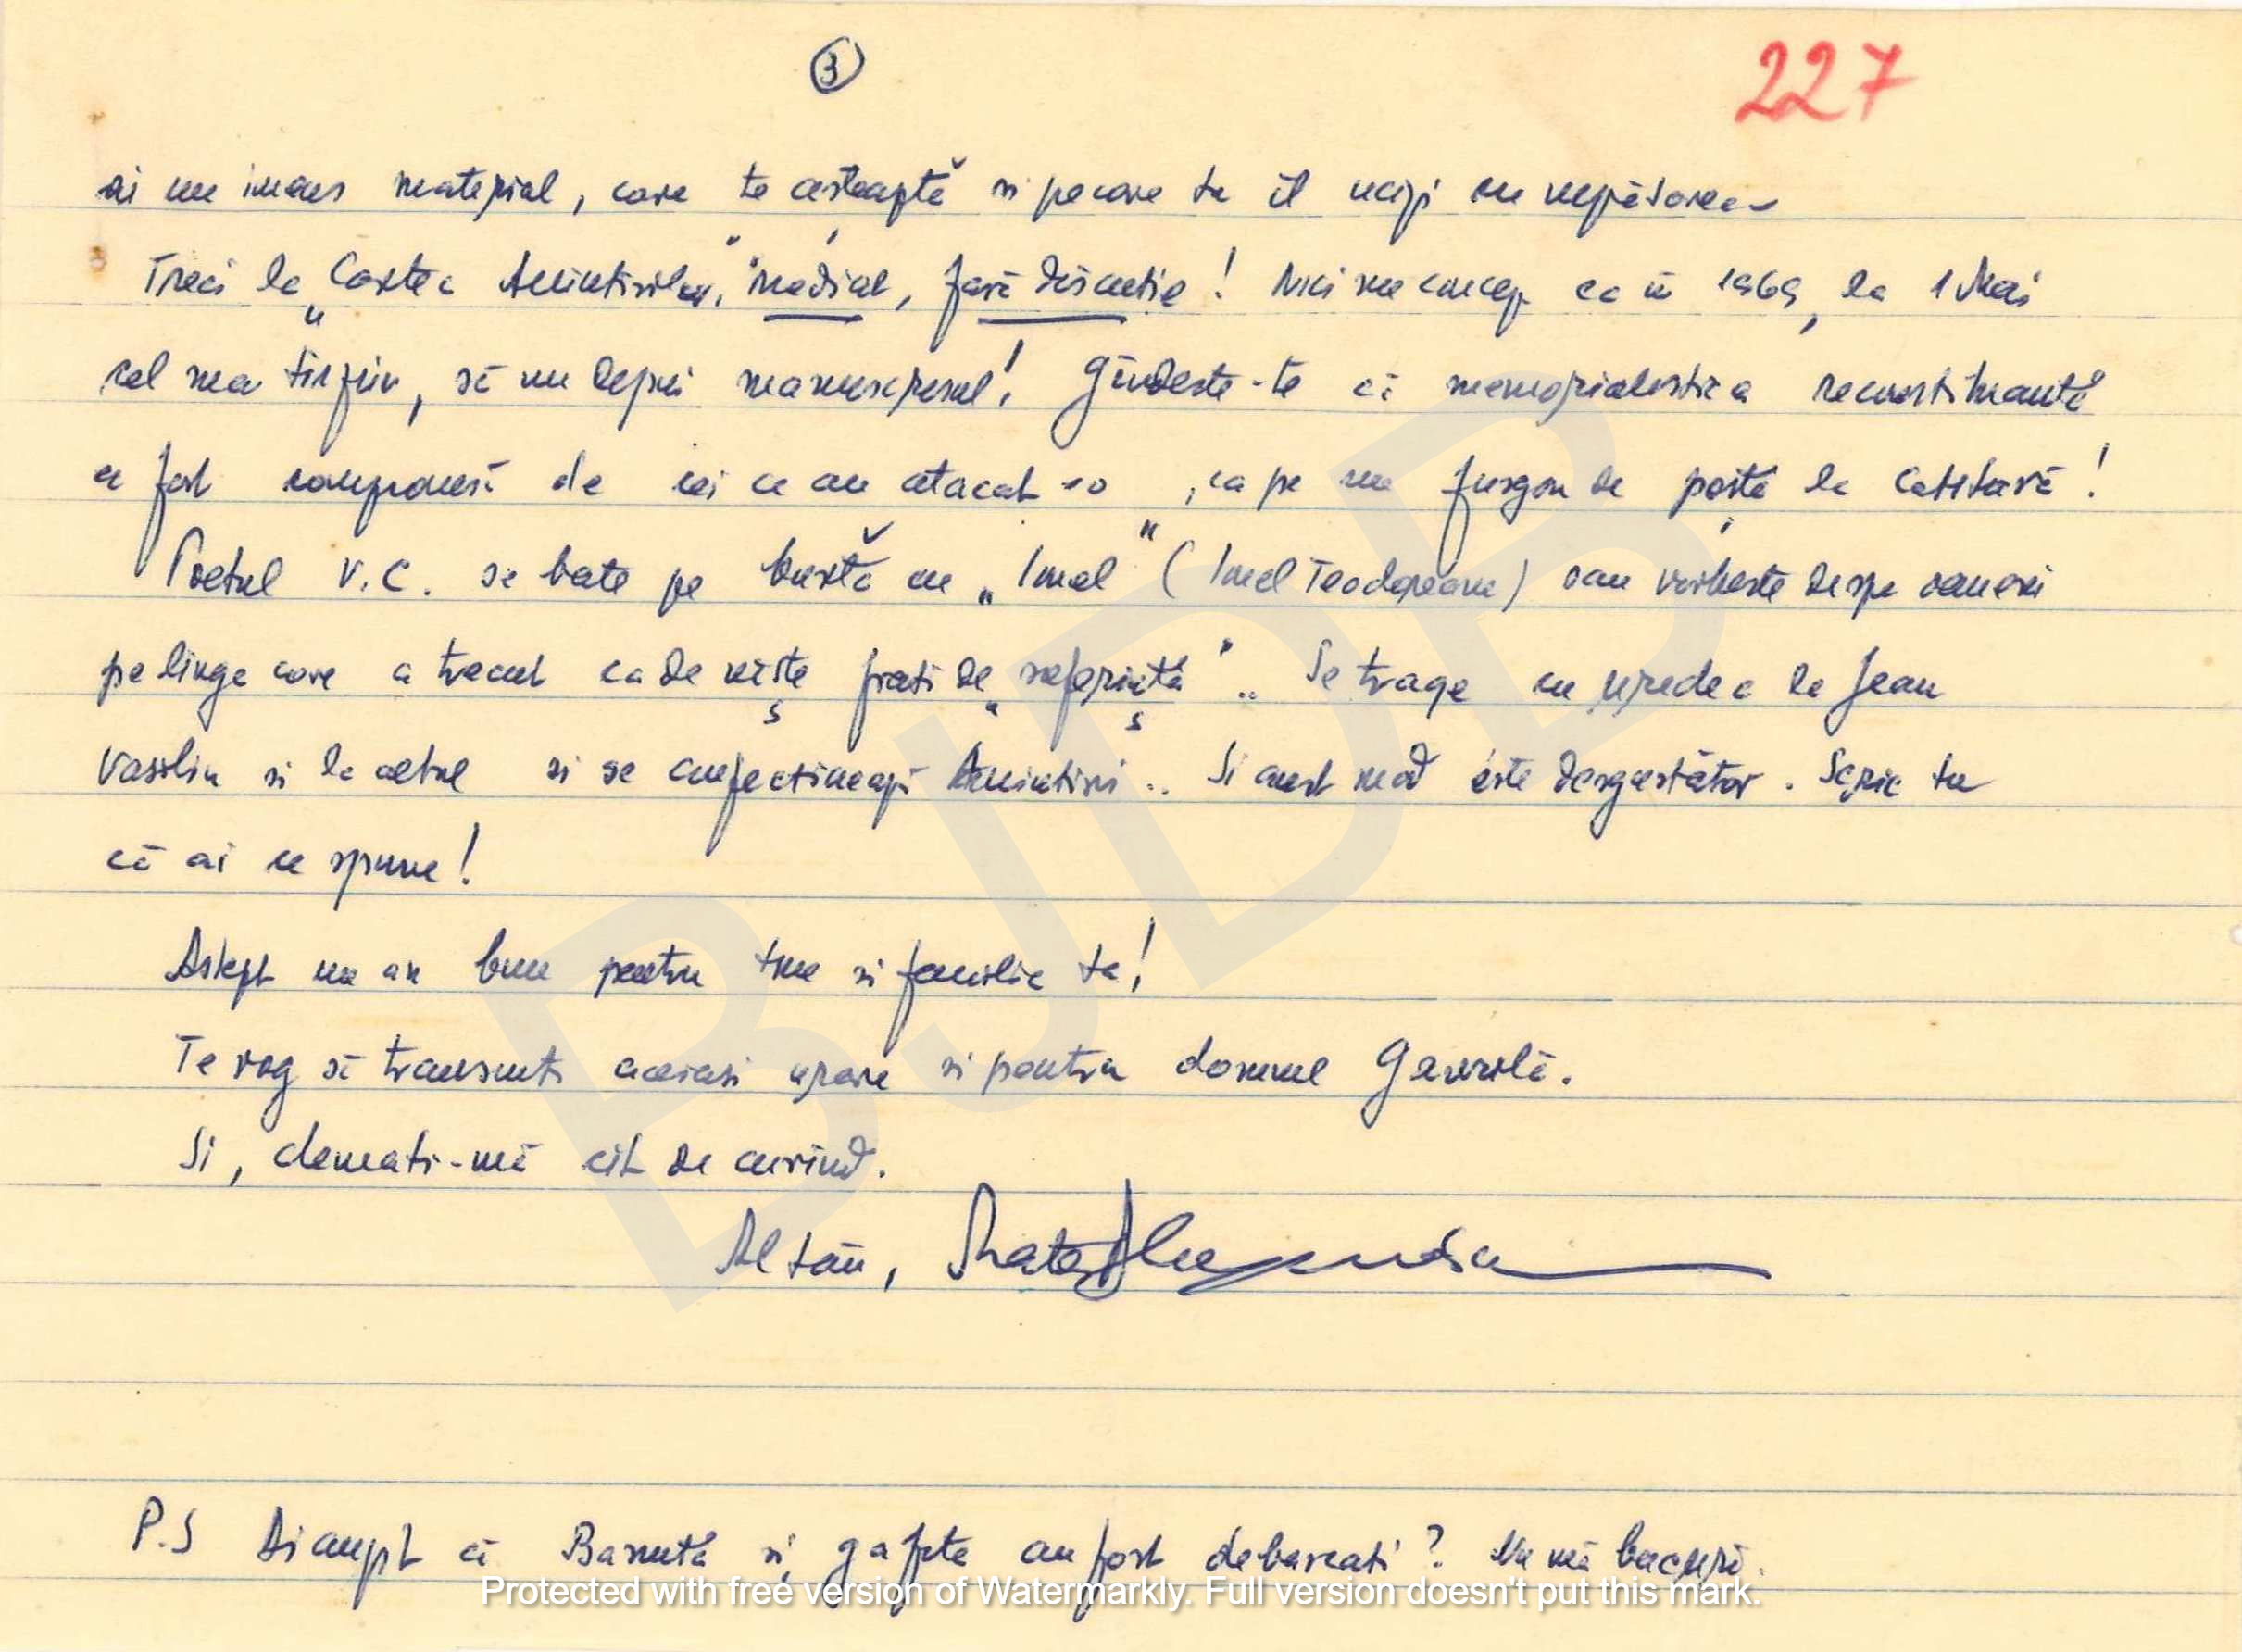 3
227
ai un imens material, care te așteaptă si pe care tu îl ucizi cu nepăsarea
Treci la „Cartea Amintirilor", imediat, fară discutie! Nici nu concep ca în 1969, la 1 Mai
cel mai tîrziu, să nu depui manuscrisul! Gîndeste-te că memorialistica
a fost compusă de cei ce au atacat-o, ca pe un furgon de poștă la
Poetul V.C. se bate pe burtă cu „Ionel" (Ionel Teodoreanu) sau vorbeste despre oameni
pe linga care a trecut ca de niște frati de „suferință".. Se trage cu urechea la Jean
Vasiliu si la altul si se confectionează Amintiri.. Si acest mod este desgustător. Scrie tu
că ai ce spune!
Astept un an bun pentru tine si familia ta!
Te rog să transmiti aceiasi urare si pentru domnul Gavrilă.
Si, chemati-mă cît de curînd.
Al tău,
P.S Ai aflat că Banuță și gașca au fost debarcati? Nu mă bucură.
BJDB
Protected with free version of Watermarkly. Full version doesn't put this mark.